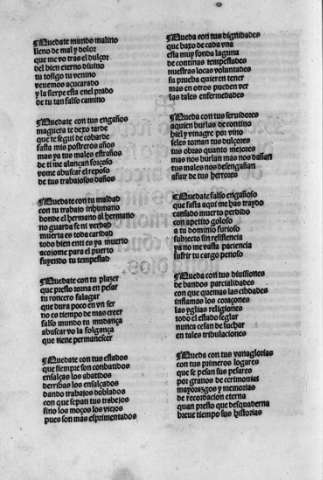 Quedate mundo malino
lleno de mal y dolor
que me vo tras el dulçor
del bien eterno diuino
tu tosigo tu venino
veuemos açucarado
y la sierpe esta enel prado
de tu tan falso camino
Quedate con tus engaños
maguera te dexo tarde
que te segui de couarde
fasta mis postreros años
mas ya tus males estraños
de ti me alançan forçoso
vome abuscar el reposo
de tus trabajosos daños
Quedate con tu maldad
con tu trabajo inhumano
donde el hermano al hermano
no guarda fe ni verdad
muerta es toda caridad
todo bien enti es ya muerto
acojome para el puerto
fuyendo tu tempestad
Quedate con tu plazer
que presto torna en pesar
tu roncero falagar
que dura poco en vn ser
no es tiempo de mas creer
falso mundo tu mudança
abuscar vo la folgança
que tiene permanescer
Quedate con tus estados
que siempre son conbatidos
ensalças los abatidos
derribas los ensalçados
dando trabajos doblados
con que sepan tus trebejos
sino los moços los viejos
pues son mas esprimentados
Queda con tus dignidades
que baxo de cada vna
esta muy fonda laguna
de continas tempestades
nuestras locas voluntades
su prueua quieren tener
mas en otros pueden ver
las tales enfermedades
Queda con tus seruidores
aquien burlas de contino
hiel y vinagre por vino
seles toman tus dulçores
tus obras quanto mejores
mas nos burlan mas nos dañan
tus males nos desengañan
afuer de tus herrores
Quedate falso engañoso
que fasta aqui me has traydo
cansado muerto perdido
con apetito goloso
a tu dominio furioso
subjecto sin resistencia
ya no me basta paciencia
sufrir tu cargo penoso
Queda con tus diuisiones
de bandos parcialidades
con que quemas las cibdades
inflamas los coraçones
las yglesias religiones
todo el estado seglar
nunca cesan de luchar
en tales tribulaciones
Queda con tus vanaglorias
con tus primeros logares
que se pesan sus pesares
por granos de cerimonias
mayorazgos y memorias
de recordacion eterna
quan presto que desquaderna
breue tiempo sus historias